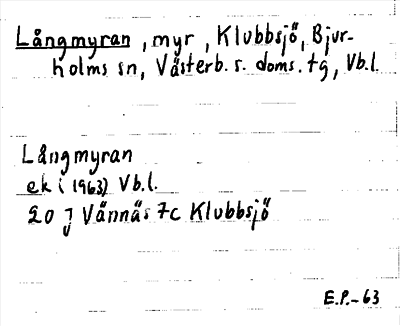 Långmyran, myr, Klubbsjö, Bjur-
holms sn, Västerb. s. doms. tg, Vb.l.
Långmyran
ek (1963) Vb.l.
20 J Vännäs 7c Klubbsjö
E.P.-63